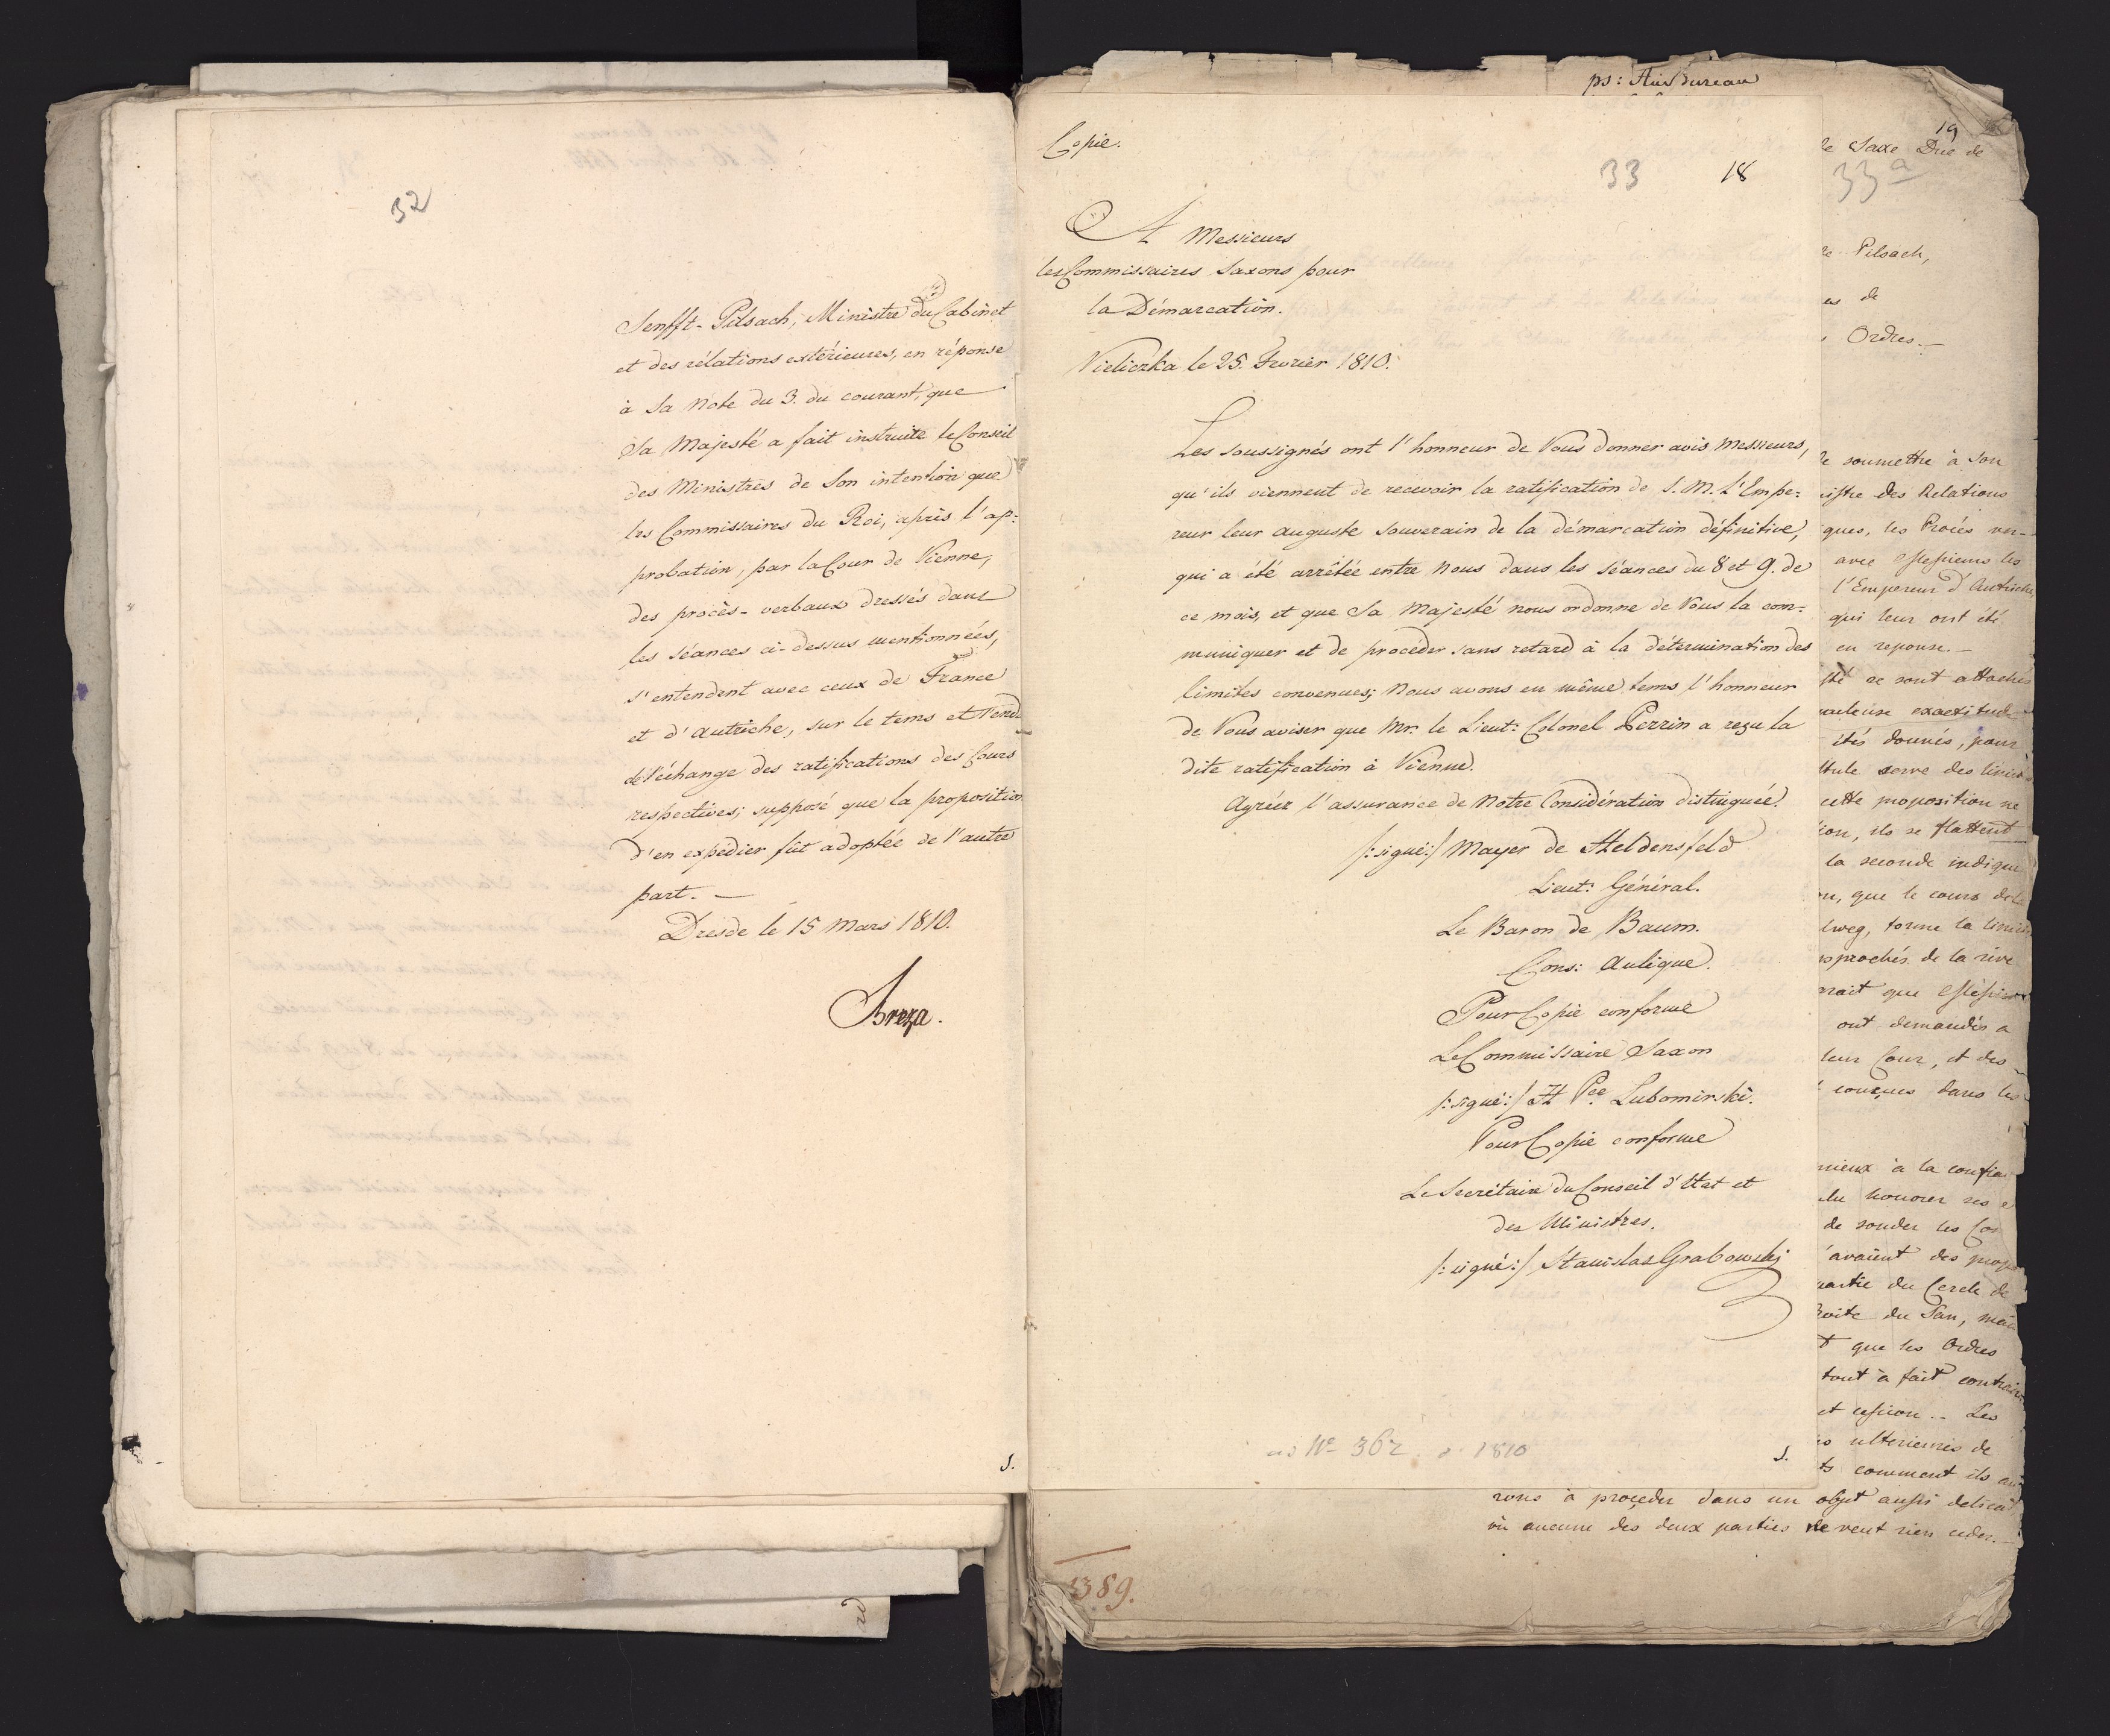 32
Senfft-Pilsach, Ministre du Cabinet
et des rélations extérieures, en réponse
à Sa Note du 3. du courant, que
Sa Majesté a fait instruire le Conseil
des Ministres de Son intention que
les Commissaires du Roi, après l'ap:
probation, par la Cour de Vienne,
des procès-verbaux dressés dans
les séances ci-dessus mentionnées,
s'entendent avec ceux de France
et d'Autriche, sur le tems et
de l'échange des ratifications des Cours
respectives; supposé que la proposition
d'en expédier fût adoptée de l'autre
part. —
Dresde le 15 Mars 1810.
Breza.
S.
ps: Au Bureau
Copie.
33 18
A Messieurs
les Commissaires Saxons pour
la Démarcation.
Vieliczka le 25. Fevrier 1810.
Les soussignés ont l'honneur de Vous donner avis Messieurs,
qu'ils viennent de recevoir la ratification de S. M. L'Empe:
reur leur auguste Souverain de la démarcation définitive,
qui a été arrêtée entre Nous dans les Séances du 8 et 9. de
ce mois, et que Sa Majesté nous ordonne de Vous la com=
muniquer et de procéder sans retard à la détermination des
limites convenues; Nous avons en même tems l'honneur
de Vous aviser que Mr. le Lieut: Colonel Perrin a reçu la
dite ratification à Vienne.
Agréez l'assurance de Notre Considération distinguée.
/:signé:/ Mayer de Heldensfeld
Lieut: Général.
Le Baron de Baum.
Cons: Aulique.
Pour Copie conforme
Le Commissaire Saxon
/:signé:/ H Pce Lubomirski.
Pour Copie conforme
Le Secrétaire du Conseil d'Etat et
des Ministres.
/:signé:/ Stanislas Grabowski
ad No 362 1810
S.
19
de Saxe Duc de
33a
de Pilsach,
es de
Ordres.—
de soumettre à Son
nistre des Relations
ques, les Procès ver-
avec Messieurs les
l'Empereur d'Autriche
qui leur ont été
en reponse.—
se sont attachés
exactitude
étés donnés, pour
cette proposition ne
ion, ils se flattent
la seconde indique
on, que le cours de la
lweg, forme la limite
approchés de la rive
rait que Messieurs
ont demandés a
leur Cour, et des
conçues dans les
mieux à la confia
lu honorer ses
de sonder les
avaient des
partie du Cercle de
droite du San, mais
t que les Ordres
tout à fait contraire
et cession.. Les
ultérieures de
ts comment ils au
rons à proçeder dans un objet aussi delicat
où aucune des deux parties ne veut rien ceder.—
3389.